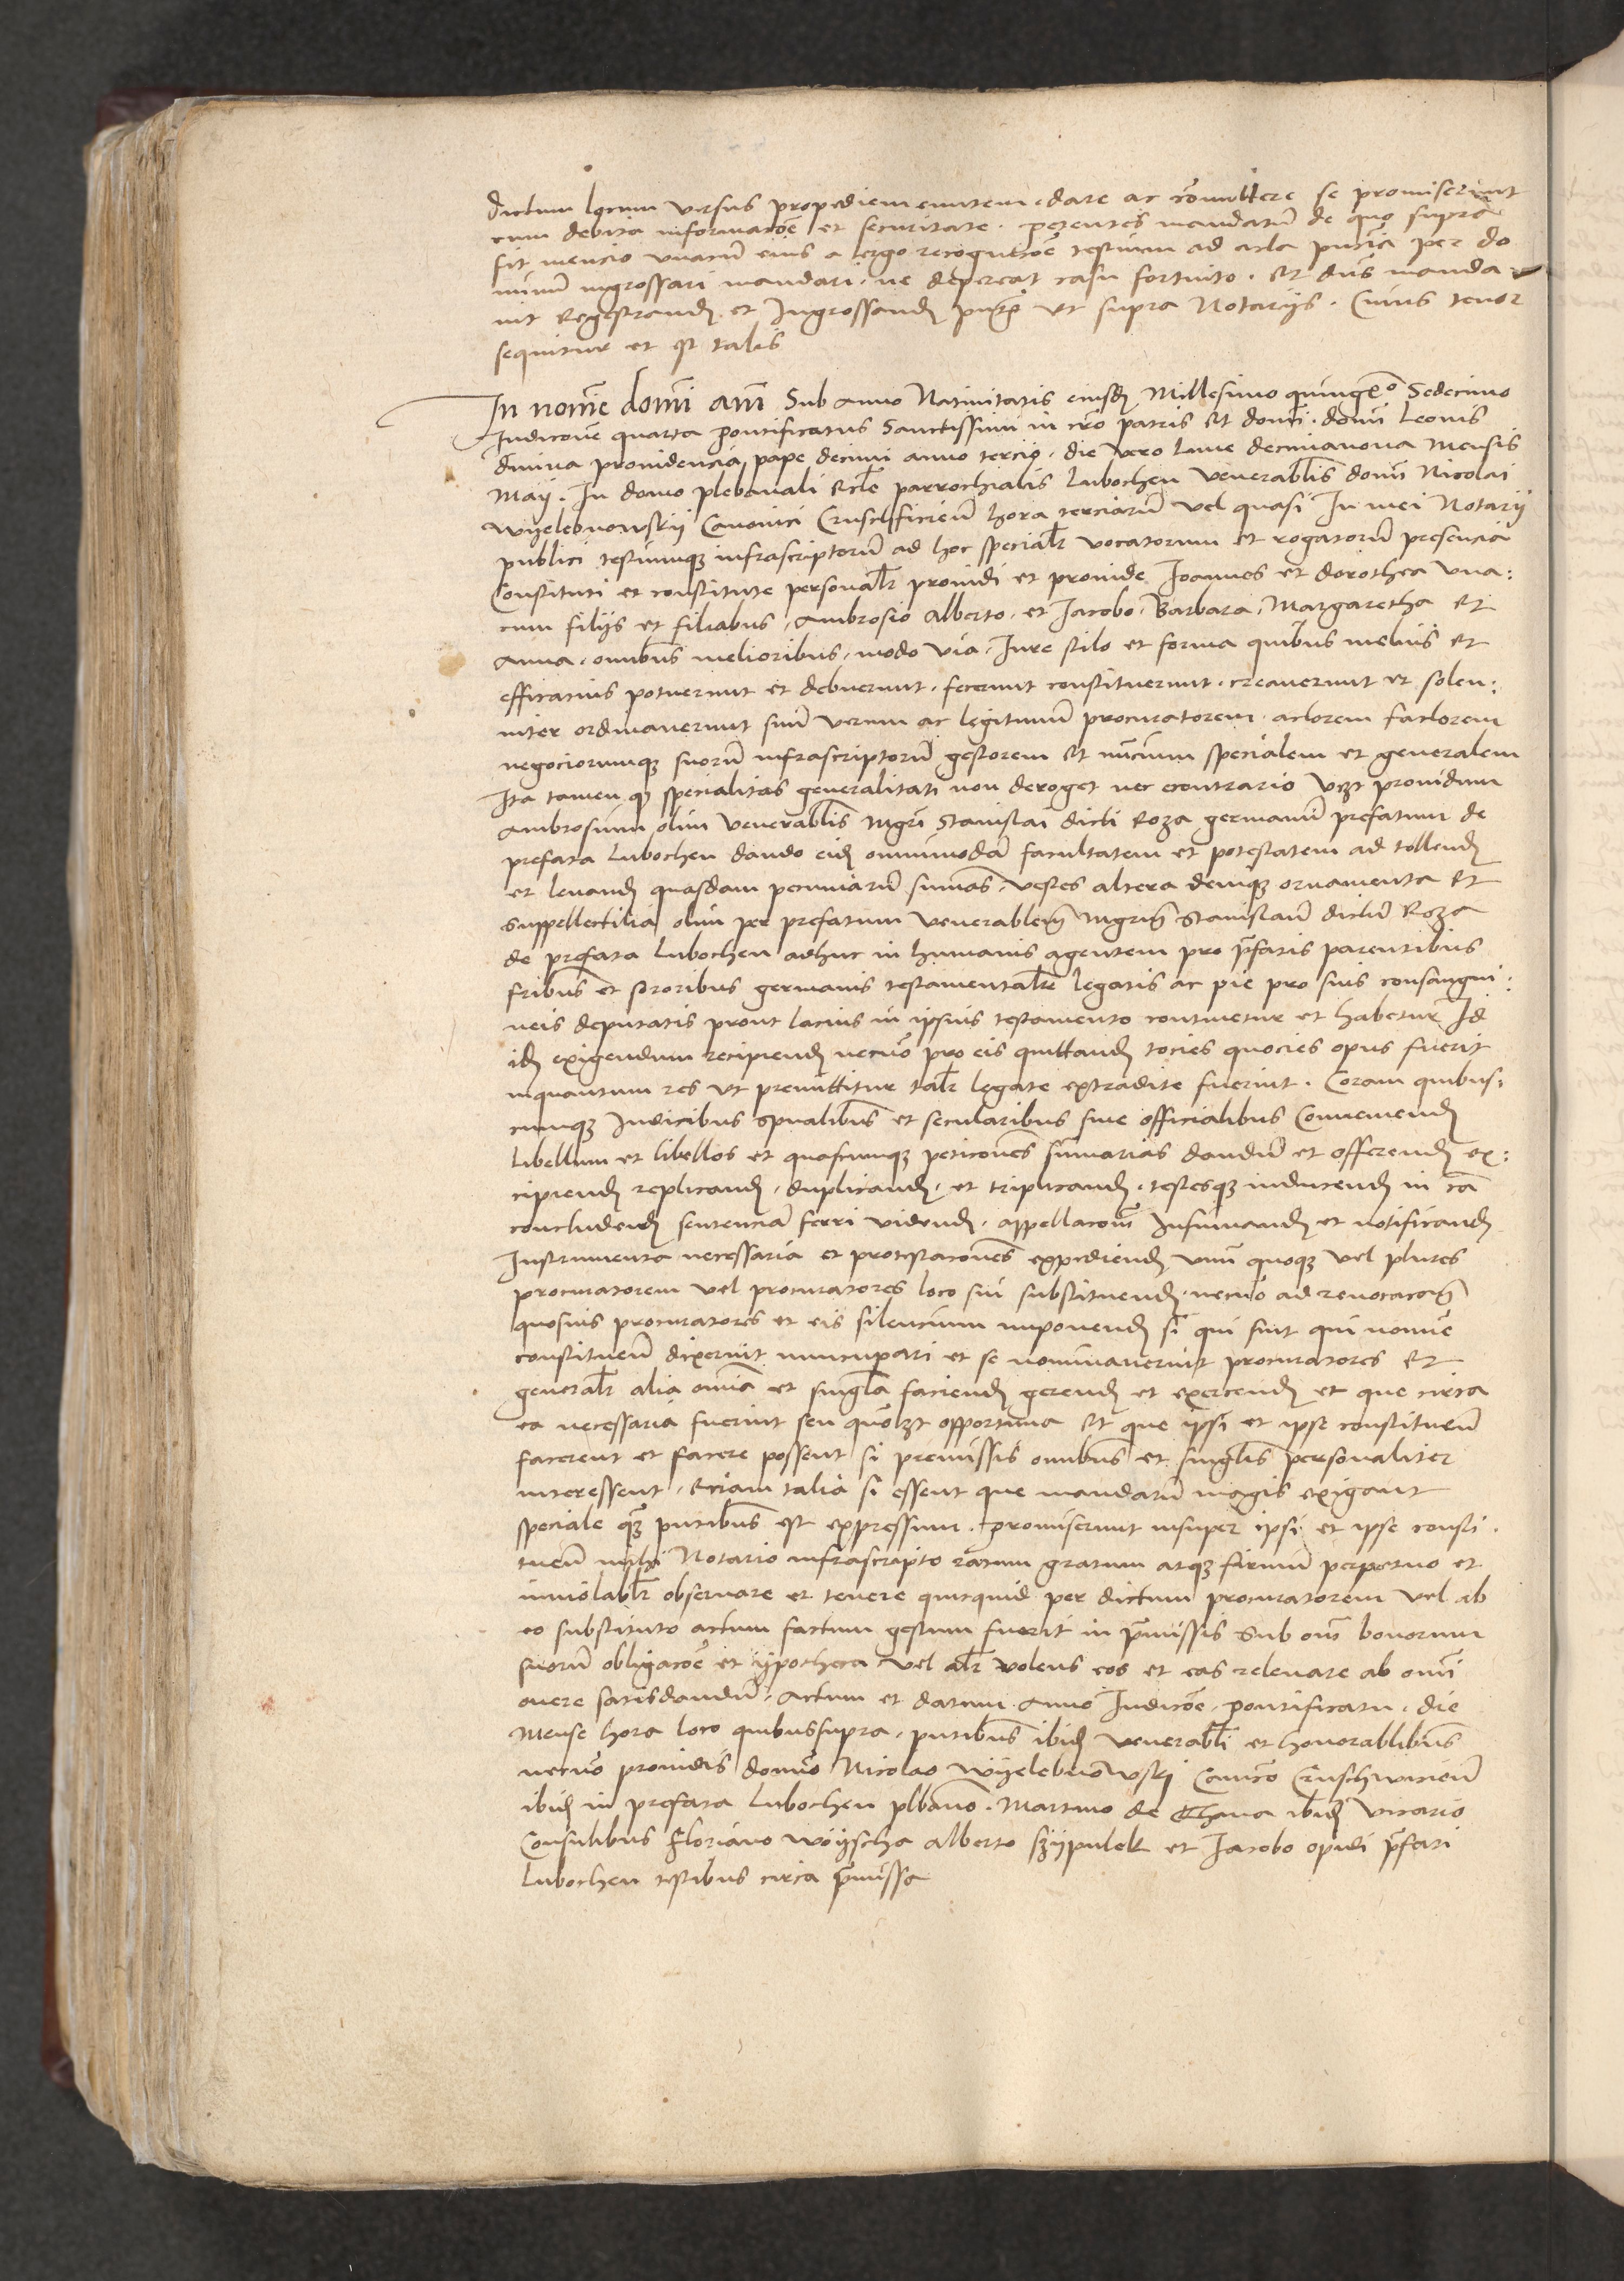 dictum locum versus propediem euntem dare ac comittere se promiserint
cum debita informacōe et securitate. petentes mandatū de quo supra
fit mencio unacū eius a tergo recognicōe testium ad acta pn̄cia per do
minū ingrossari mandari, ne depereat casu fortuito. Et dn̄s manda-
vit Regestrand̨ et Ingrossand̨ ut supra Notariis. Cuius tenor
sequitur et est talis
In noīe domi am̄ Sub anno Nativitatis eiusd̨ Millesimo quingēo Sedecimo
Indicione quarta pontificatus Sanctissimi in cro patris et domī. domī Leonis
divina providencia pape decimi anno tercio. die vero lune decimanona mensis
Maij. In domo plebanali eccle parrochialis Lubochen venerablis domi Nicolai
Wyelebnowskij Canonici Cruschficieñ hora terciarū vel quasi In mei Notarij
publici testiumqz infrascriptorū ad hoc specialr vocatorum et rogatorū presencia
Constituti et constitute personalr providi et provide Ioannes et dorothea una:
cum filijs et filiabus, Ambrosio Alberto. et Jacobo. Barbara, Margaretha et
Anna. omnibus melioribus, modo via, Iure stilo et forma quibus melius et
efficacius potuerunt et debuerunt. fecerunt constituerunt. creaverunt et solen:
niter ordinaverunt suū verum ac legitimū procuratorem actorem factorem
negociorumqz suorū infrascriptorū gestorem et nuncium specialem et generalem
Ita tamen qz specialitas generalitati non deroget nec econtrario vczt providum
Ambrosium olim venerablis mgri Stanislai dicti Roza germanū prefatum de
prefata Lubochen dando eid̨ omnimodā facultatem et potestatem ad tollend̨
et levand̨ quasdam pecuniarū sumas, vestes altera deniqz ornamenta et
suppellectilia olim per prefatum venerablem mgrum Stanislaū dictū Roza
de prefata Lubochen adhuc in humanis agentem pro pfatis parentibus
fribus et sororibus germanis testamentalr legatis ac pie pro suis consangui:
neis deputatis prout lacius in ipsius testamento continetur et habetur Id
id̨ exigendum recipiend̨ necnō pro eis quittand̨ tocies quocies opus fuerit
inquantum res ut premittitur talr legate extradite fuerint. Coram quibus:
cumqz Iudicibus spualibus et secularibus sive officialibus Conveniend̨
Libellum et libellos et quascumqz peticiones sumarias dandū et offerend̨ ex:
cipiend̨ replicand̨, duplicand̨, et triplicand̨. testesqz inducend̨ in cā
concludend̨ sentenciā ferri vidend̨. appellacom̄ Insinuand̨ et notificand̨
Instrumenta necessaria et protestaciones expediend̨ unū quoqz vel plures
procuratorem vel procuratores loco sui substituend̨. necnō ad revocacom̄
quosvis procuratores et eis silencium imponend̨ si qui sint qui nomīe
constitueñ dixerint nuncupari et se nominaverint procuratores et
generalr alia omīa et singla faciend̨ gerend̨ et exercend̨ et que circa
ea necessaria fuerint seu quōlzt opportuna et que ipsi et ipse constitueñ
facerent et facere possent si premissis omnibus et singlis personaliter
interessent. Eciam talia si essent que mandatū magis exigant
speciale qz pntibus est expressum. promiserunt insuper ipsi et ipse consti.
tueñ mihi Notario infrascripto ratum gratum atqz firmū perpetuo et
inviolablr observare et tenere quicquid per dictum procuratorem vel ab
eo substituto actum factum gestum fuerit in pmissis Sub om̄ bonorum
suorū obligacōe et ypotheca vel alr volens eos et eas relevare ab omī
onere satisdandū. Actum et datum. anno Indicōe. pontificatu. die
Mense hora loco quibussupra. pntibus ibid̨ venerabli et honorablibus
necnō providis domno Nicolao Wyelebnowskj Canōco Cruschwicieñ
ibid̨ in prefata Lubochen plbano. Martino de Thana ibid̨ vicario
Consulibus Floriano Woyscha Alberto Szypulek et Jacobo opidi pfati
Lubochen testibus circa pmissa